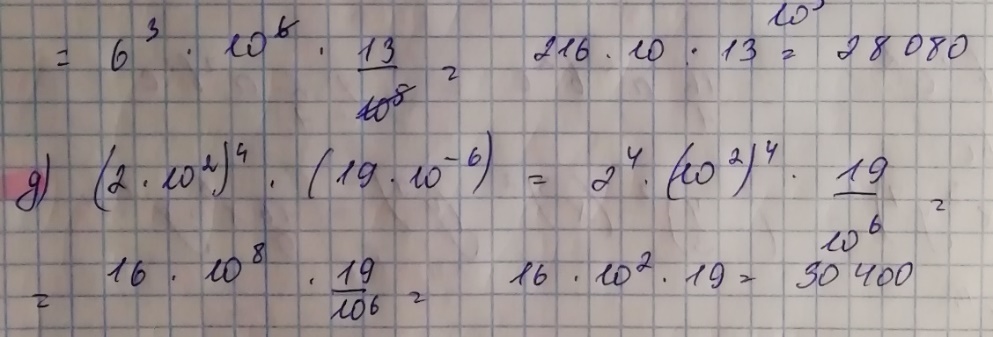 = 6³ · 10⁶ · 13/10⁵ = 216 · 10 · 13 = 28 080
д) (2 · 10²)⁴ · (19 · 10⁻⁶) = 2⁴ · (10²)⁴ · 19/10⁶ =
= 16 · 10⁸ · 19/10⁶ = 16 · 10² · 19 = 30 400